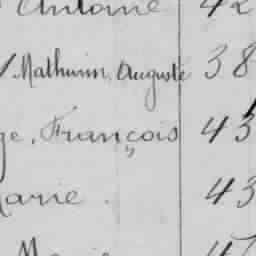 Antoine 42
Mathurin Auguste 38
François 43
Marie. 43